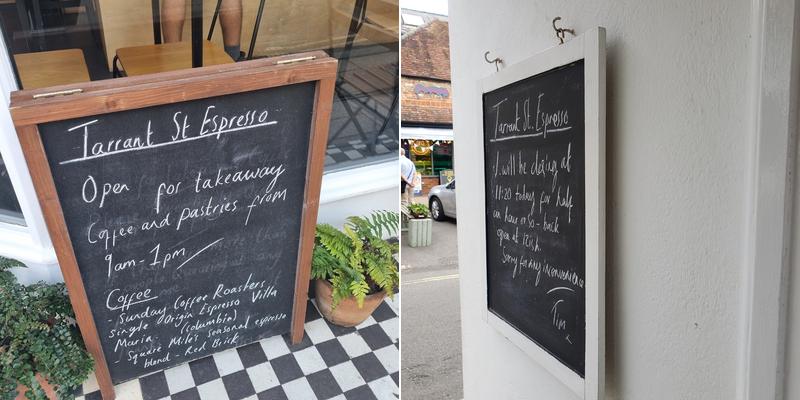 Tarrant St Espresso
Open for takeaway
Coffee and pastries from
9am-1pm
Coffee
- Sunday Coffee Roasters
Single Origin Espresso Villa
Maria (Columbia)
Square Mile's Seasonal espresso
blend - Red Brick
Tarrant St. Espresso
I will be closing at
11:20 today for half
an hour or so - back
open at 12ish.
Sorry for any inconvenience
Tim
x